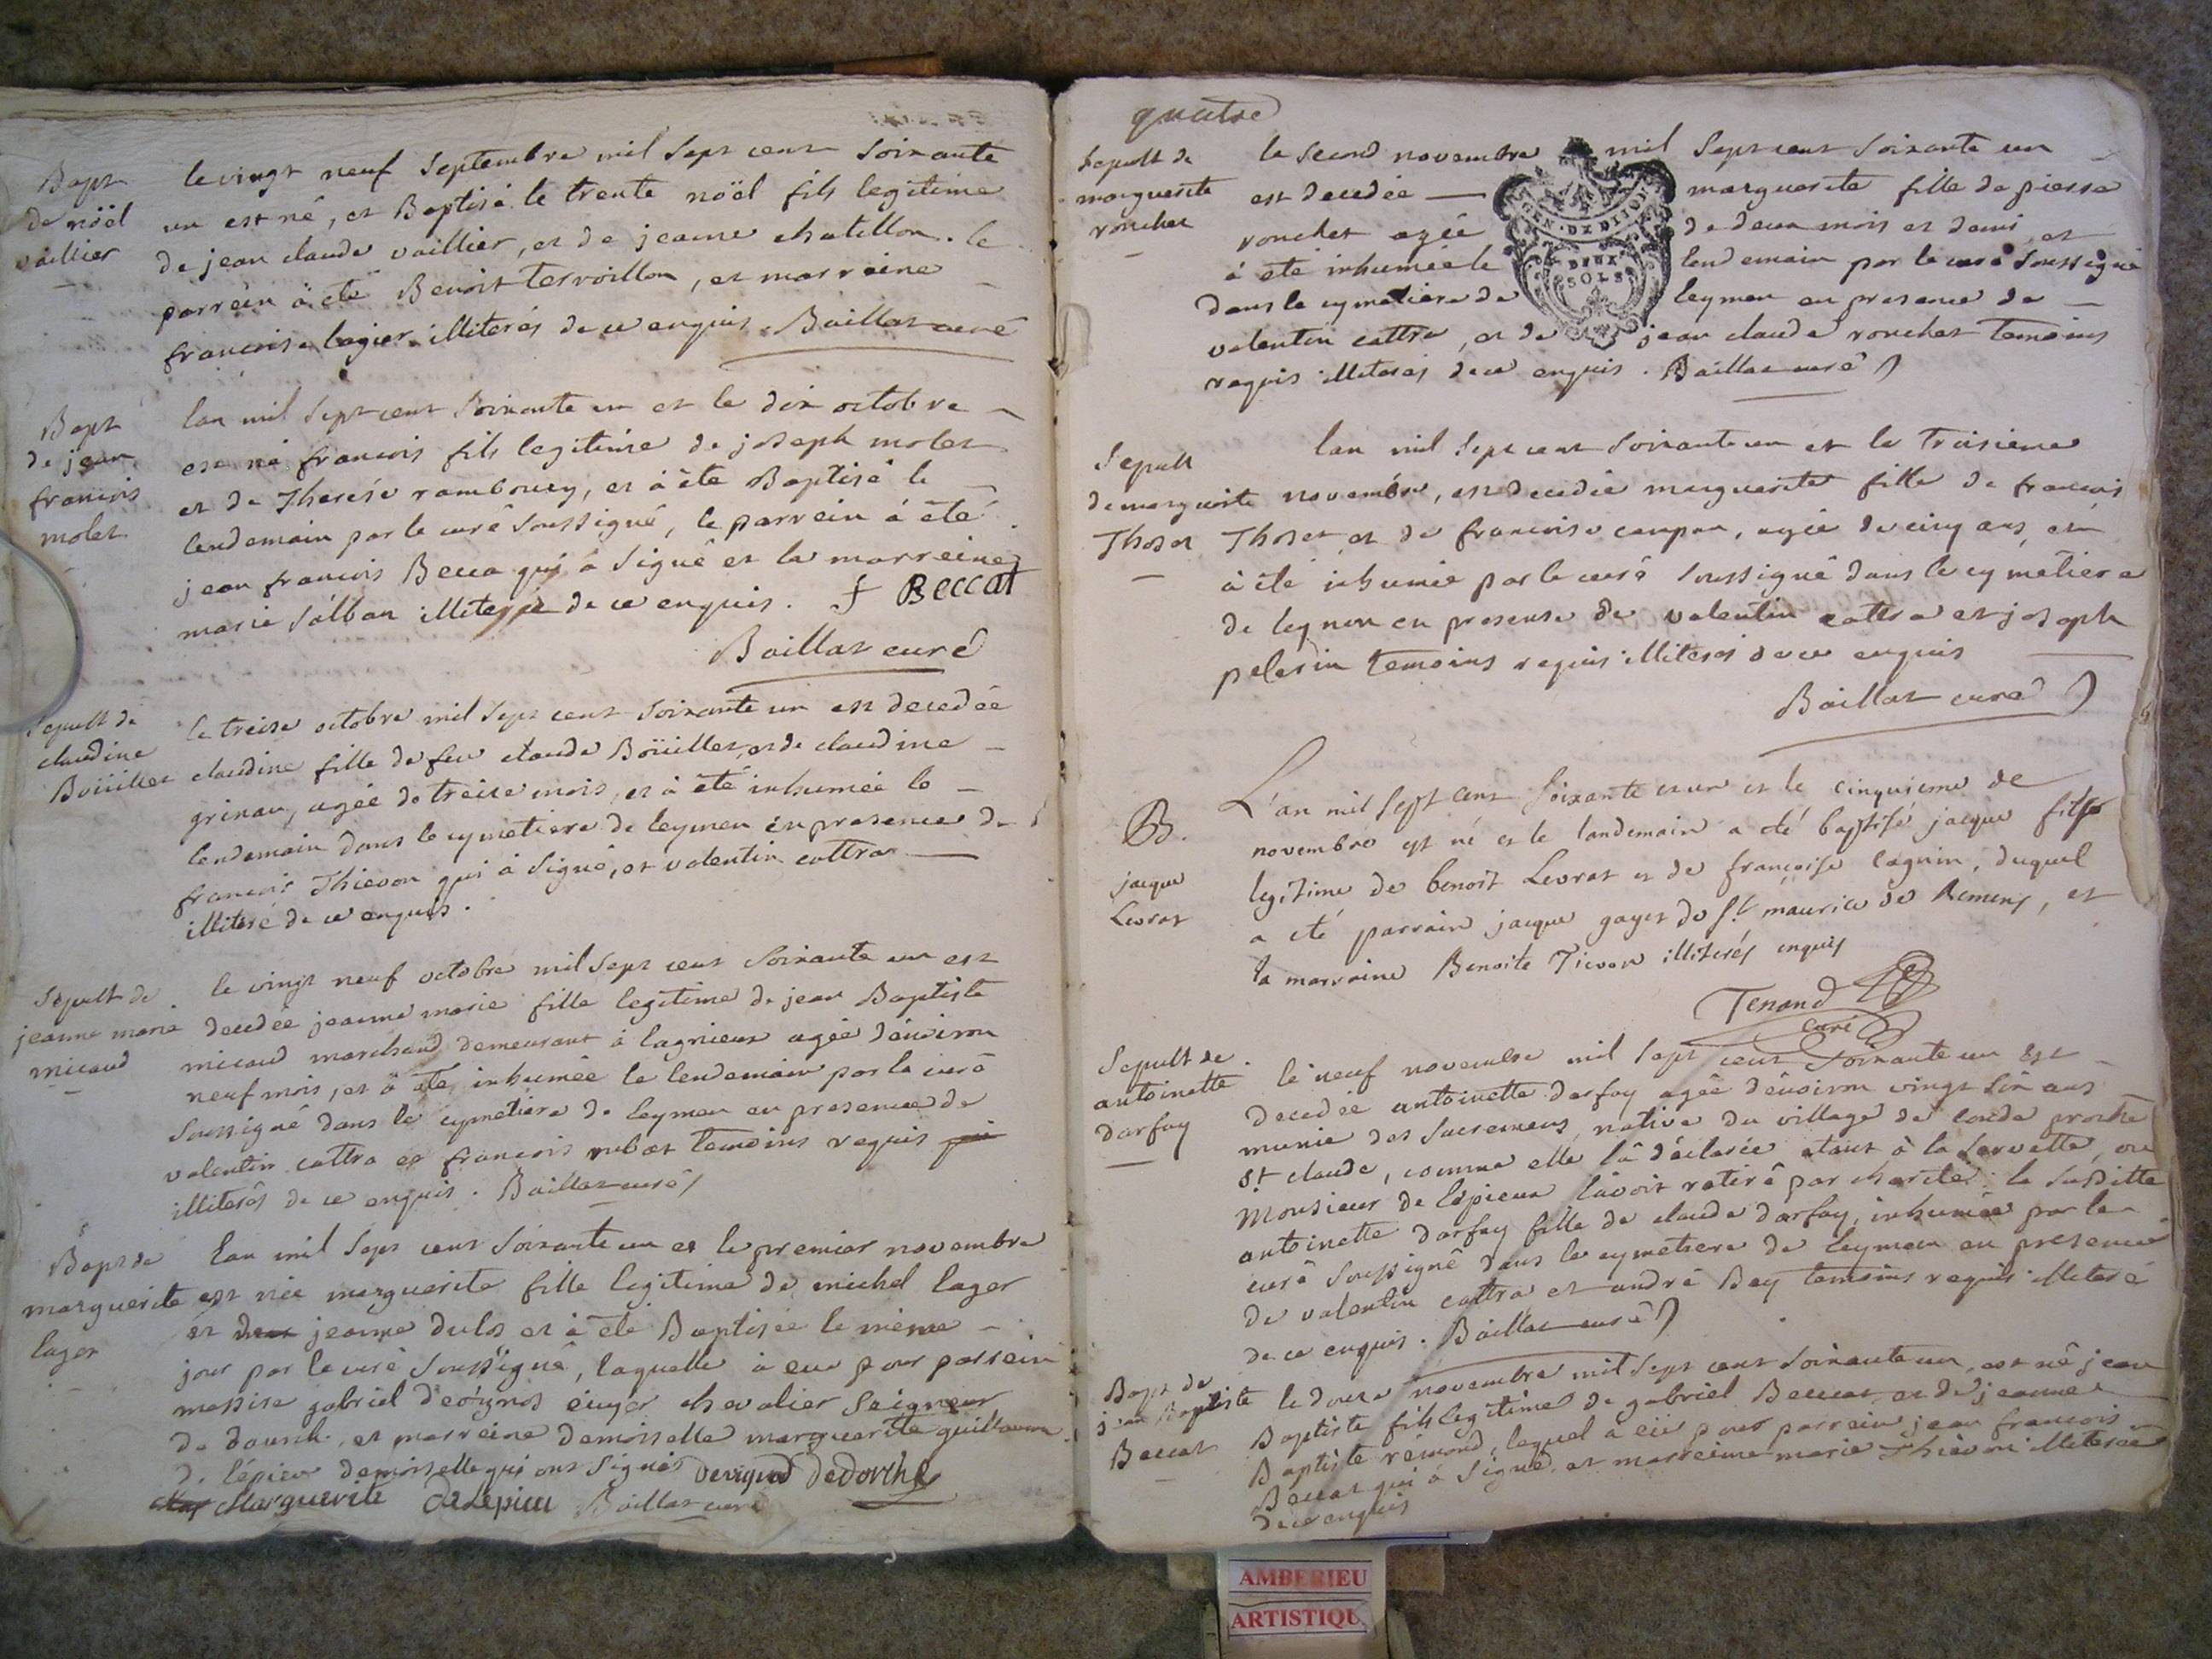 Bapt
de nöel
vaillier
le vingt neuf Septembre mil Sept cent Soixante
un est né, et Baptisé le trente nöel fils legitime
de jean claude vaillier, et de jeanne chatillon. le
parrein à eté Benoit tervoillon, et marreine
francoise lagier illiterés de ce enquis. Baillat curé
Bapt
de jean
francois
molet
lan mil Sept cent Soixante un et le dix octobre
est né francois fils legitime de joseph molet
et de Therése rambouy, et à ête Baptisé le
lendemain par le curé Soussigné, le parrein à êté
jean francois Becca qui à Signé et la marreine
marie Salban illiterée de ce enquis. f Beccat
Baillat curé
Sepult de
claudine
Boüillet
le treise octobre mil Sept cent Soixante un est decedée
claudine fille de feu claude Boüillet, et de claudine
grinau, agée de treise mois, et à été inhumée le
lendemain dans le cymetiere de leymen en presence de
francois Thievon qui à Signé, et valentin cattra
illiteré de ce enquis.
Sepult de
jeanne marie
micaud
le vingt neuf octobre mil Sept cent Soixante un est
decedée jeanne marie fille legitime de jean Baptiste
micaud marchand demeurant à lagnieux agée dênviron
neuf mois, et à ête inhumée le lendemain par le curé
Soussigné dans le cymetiere de leymen en presence de
valentin cattra et francois temoins requis
illiterés de ce enquis. Baillat curé
Bapt de
marguerite
lager
lan mil Sept cent Soixante un et le premier novembre
est née marguerite fille legitime de michel lager
et jeanne dulos et à été Baptisée le même
jour par le curé Soussigné, laquelle à eu pour parrein
messire gabriel écuyer chevalier Seigneur
de dourch, et marreine demoiselle marguerite guillaume
de lépieu demoiselle qui ont Signés devignod dedorche
Marguerite deLepieu Baillat curé
quatre
Sepult de
marguerite
ronchet
le Second novembre mil Sept cent Soixante un
est decedée marguerite fille de pierre
ronchet agée de deux mois et demi, et
à eté inhumée le lendemain par le curé Soussigné
dans le cymetiere de leymen en presence de
valentin cattra, et de jean claude ronchet temoins
requis illiterés de ce enquis. Baillat curé
GEN. DE DIJON
DEUX
SOLS
Sepult
de marguerite
Thoset
lan mil Sept cent Soixante un et le Troisieme
novembre, est decedée marguerite fille de francois
Thoset et de francoise canpan, agée de cinq ans, et
à été inhumée par le curé Soussigné dans le cymetiere
de leymen en presense de valentin cattra et joseph
pelerin temoins requis illiterés de ce enquis
Baillat curé
B.
jacque
Levrat
L'an mil Sept cent Soixante et un et le cinquieme de
novembre est né et le landemain a été baptisé jacque fils
legitime de benoit Levrat et de françoise lagnin, duquel
a été parrain jacque gayet de St maurice de Remens, et
la marraine Benoite Tievon illiterés enquis
Tenand
curé
Sepult de
antoinette
darfay
le neuf novembre mil Sept cent Soixante un est
decedée antoinette darfay agée dênviron vingt Six ans
munie des Sacremens, native du village de conde proche
St claude, comme elle lâ déclarée etant à la Servette, ou
Monsieur de lépieux lávoit retiré par charité. la Susditte
antoinette darfay fille de claude darfay, inhumée par le
curé Soussigné dans le cymetiere de leymen en presence
de valentin cattra et andré Bey temoins requis illiteré
de ce enquis. Baillat curé
Bapt de
jean Baptiste
Beccat
le douze novembre mil Sept cent Soixante un, est né jean
Baptiste fils legitime de gabriel Beccat et de jeanne
Baptiste rémond, lequel à eü pour parrein jean francois
Beccat qui à Signé et marreine marie Thievon illiterée
de ce enquis
AMBERIEU
ARTISTIQU